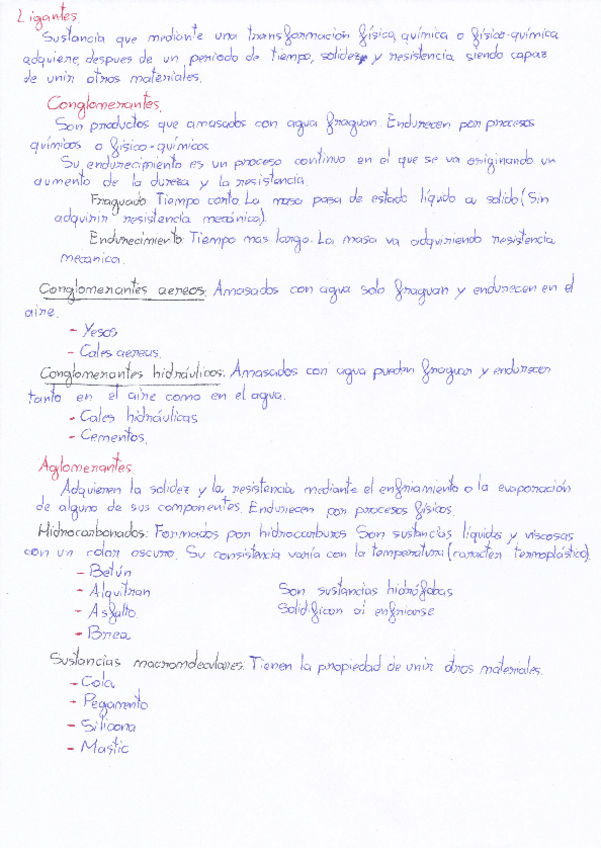 Ligantes
Sustancia que mediante una transformación física, química o físico-química
adquiere, despues de un periodo de tiempo, solidez y resistencia siendo capaz
de unir otros materiales.
Conglomerantes.
Son productos que amasados con agua fraguan. Endurecen por procesos
químicos o físico-químicos
Su endurecimiento es un proceso continuo en el que se va originando un
aumento de la dureza y la resistencia.
Fraguado Tiempo corto. La masa pasa de estado líquido a solido (Sin
adquirir resistencia mecánica).
Endurecimiento: Tiempo mas largo. La masa va adquiriendo resistencia
mecanica.
Conglomerantes aereos: Amasados con agua solo fraguan y endurecen en el
aire.
- Yesos
- Cales aereas.
Conglomerantes hidráulicos: Amasados con agua pueden fraguar y endurecer
tanto en el aire como en el agua.
- Cales hidráulicas
- Cementos.
Aglomerantes.
Adquieren la solidez y la resistencia mediante el enfriamiento o la evaporación
de alguno de sus componentes. Endurecen por procesos físicos.
Hidrocarbonados: Formados por hidrocarburos Son sustancias líquidas y viscosas
con un color oscuro. Su consistencia varía con la temperatura (caracter termoplástico).
- Betún
- Alquitran Son sustancias hidrófobas
- Asfalto. Solidifican al enfriarse
- Brea
Sustancias macromoleculares: Tienen la propiedad de unir otros materiales.
- Cola
- Pegamento
- Silicona
- Mastic